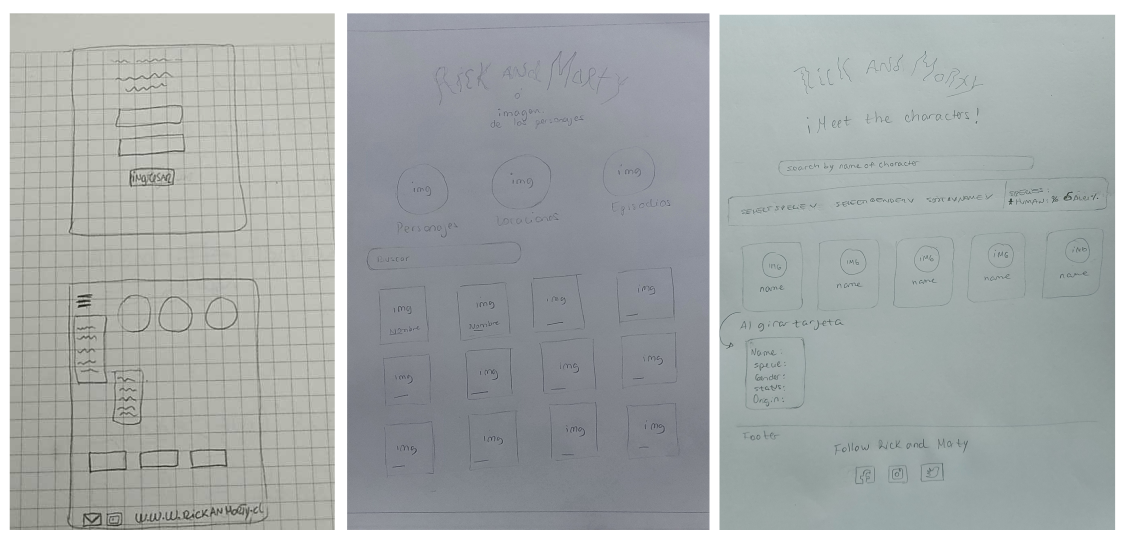 INGRESAR
WWW.RICKANMORTY.CL
RICK AND MORTY
o
imagen
de los personajes
img
img
img
Personajes
Locaciones
Episodios
Buscar
img
Nombre
img
Nombre
img
img
img
img
img
img
img
img
img
img
RICK AND MORTY
¡Meet the characters!
search by name of character
SELECT SPECIE V
SELECT GENDER V
SORT BY NAME V
SPECIES:
HUMAN: %
ALIEN %
IMG
name
IMG
name
IMG
name
IMG
name
IMG
name
Al girar tarjeta
Name
specie:
Gender:
status:
Origin:
Footer
Follow Rick and Morty